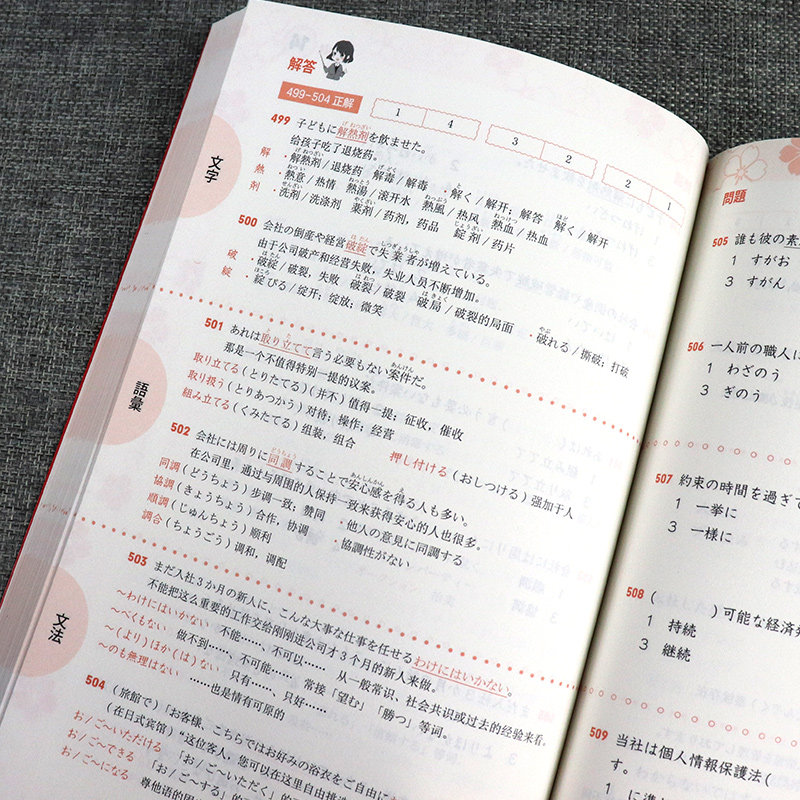 解答
499-504 正解
1 4 3 2 2 1
文字
499 子どもに解熱剤を飲ませた。
给孩子吃了退烧药。
解 ・解熱剤/退烧药 解毒/解毒 ・解く/解开；解答 解く/解开
熱 ・熱意/热情 熱湯/滚开水 熱風/热风 熱血/热血
剤 ・洗剤/洗涤剂 薬剤/药剂，药品 錠剤/药片
500 会社の倒産や経営破綻で失業者が増えている。
由于公司破产和经营失败，失业人员不断增加。
破 ・破綻/破裂，失败 破裂/破裂 破局/破裂的局面 ・破れる/撕破；打破
綻 ・綻びる/绽开；绽放；微笑
語彙
501 あれは取り立てて言う必要もない案件だ。
那是一个不值得特别一提的议案。
取り立てる(とりたてる)(并不)值得一提；征收，催收
取り扱う(とりあつかう)对待；操作；经营
組み立てる(くみたてる)组装，组合 押し付ける(おしつける)强加于人
502 会社には周りに同調することで安心感を得る人も多い。
在公司里，通过与周围的人保持一致来获得安心的人也很多。
同調(どうちょう)步调一致；赞同 ・他人の意見に同調する
協調(きょうちょう)合作，协调 ・協調性がない
順調(じゅんちょう)顺利
調合(ちょうごう)调和，调配
文法
503 まだ入社3か月の新人に、こんな大事な仕事を任せるわけにはいかない。
不能把这么重要的工作交给刚刚进公司才3个月的新人来做。
～わけにはいかない 不能……，不可以…… 从一般常识、社会共识或过去的经验来看，
～べくもない 做不到……，不可能…… 常接「望む」「勝つ」等词。
～(より)ほか(は)ない 只有……，只好……
～のも無理はない ……也是情有可原的
504 (旅館で)「お客様、こちらではお好みの浴衣をご自由に
(在日式宾馆)"这位客人，您可以在这里自由挑选
お/ご～いただける 「お/ご～いただく」の
お/ご～できる 「お/ご～する」的
お/ご～になる 尊他语的
問題
505 誰も彼の素
1 すがお
3 すがん
506 一人前の職人に
1 わざのう
3 ぎのう
507 約束の時間を過ぎて
1 一挙に
3 一様に
508 ( )可能な経済発
1 持続
3 継続
509 当社は個人情報保護法(
す。